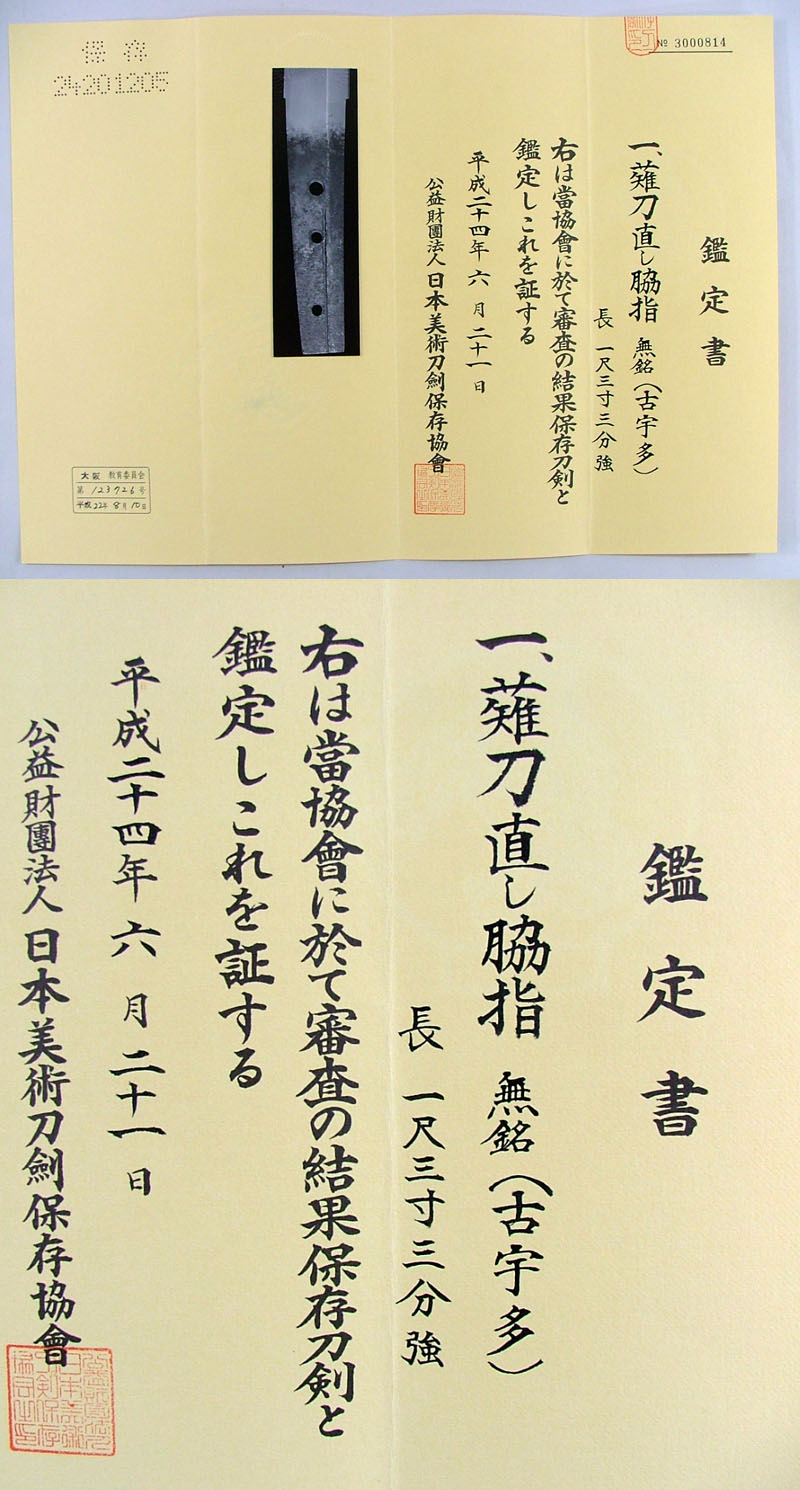 № 3000814
鑑定書
一、薙刀直し脇指 無銘(古宇多)
長 一尺三寸三分強
右は當協會に於て審査の結果保存刀剣と
鑑定しこれを証する
平成二十四年六月二十一日
公益財團法人日本美術刀劍保存協會
保存
24201205
大阪 教育委員会
第123726号
平成22年8月10日
鑑定書
一、薙刀直し脇指 無銘(古宇多)
長 一尺三寸三分強
右は當協會に於て審査の結果保存刀剣と
鑑定しこれを証する
平成二十四年六月二十一日
公益財團法人日本美術刀劍保存協會